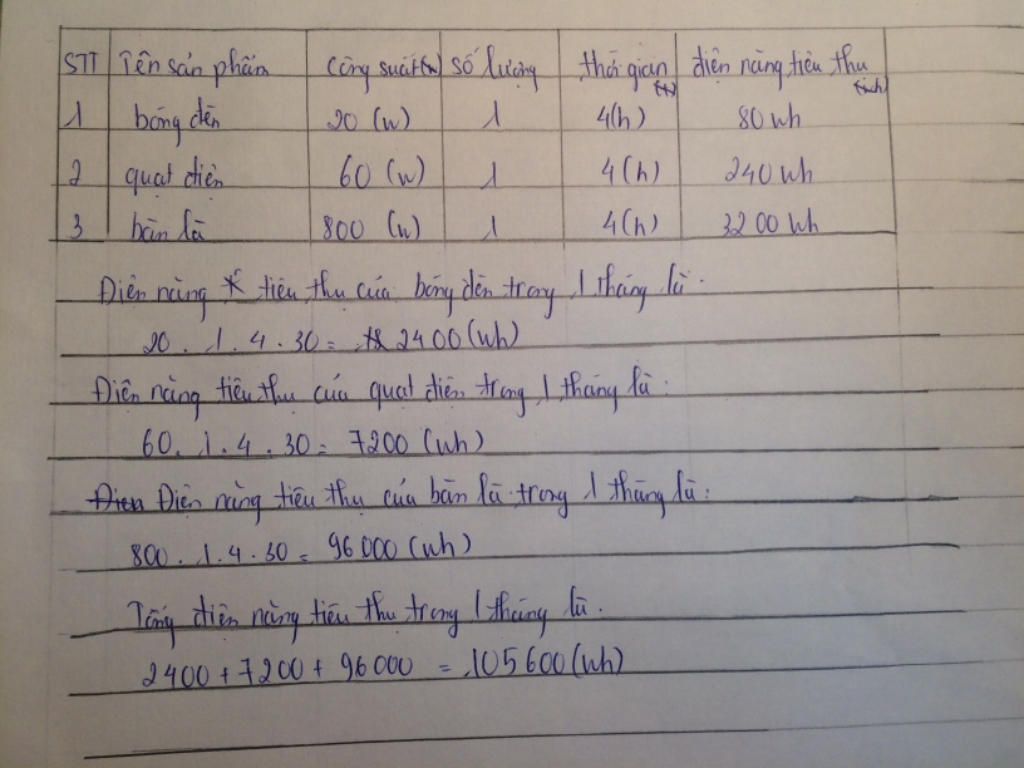 STT Tên sản phẩm Công suất(w) số lượng thời gian (h) điện năng tiêu thụ (Wh)
1 bóng đèn 20 (w) 1 4(h) 80 Wh
2 quạt điện 60 (w) 1 4(h) 240 Wh
3 bàn là 800 (w) 1 4(h) 3200 Wh
Điện năng tiêu thụ của bóng đèn trong 1 tháng là:
20. 1. 4. 30 = 2400 (Wh)
Điện năng tiêu thụ của quạt điện trong 1 tháng là:
60. 1. 4. 30 = 7200 (Wh)
Điện Điện năng tiêu thụ của bàn là trong 1 tháng là:
800. 1. 4. 30 = 96000 (Wh)
Tổng điện năng tiêu thụ trong 1 tháng là.
2400 + 7200 + 96000 = 105600 (Wh)